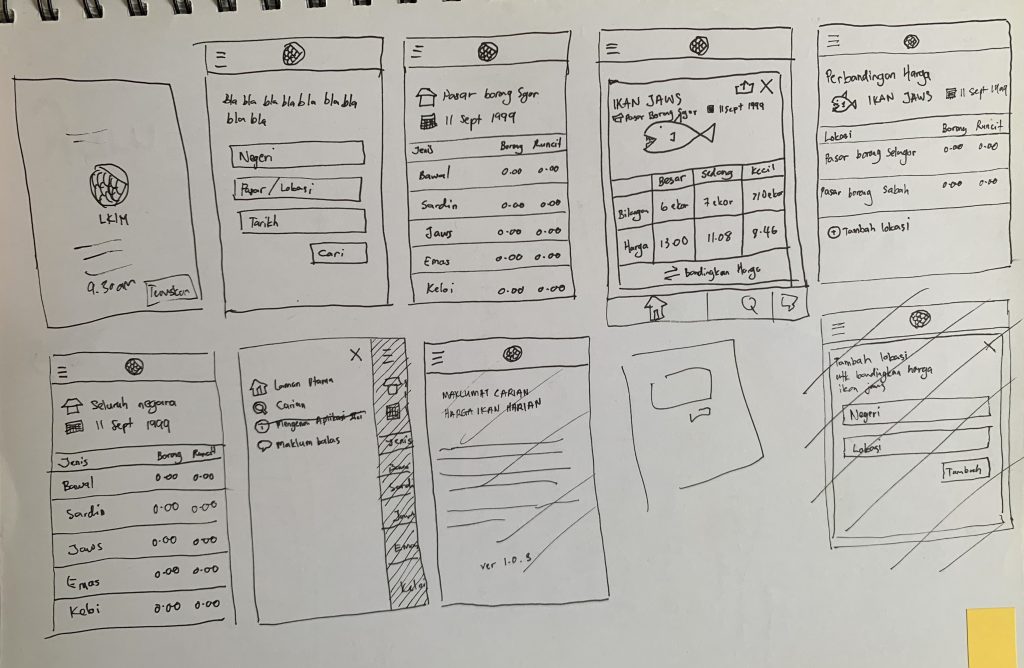 LKIM
9.30am
Teruskan
bla bla bla bla bla bla bla
bla bla
Negeri
Pasar / Lokasi
Tarikh
Cari
Pasar borong Sgor
11 Sept 1999
Jenis Borong Runcit
Bawal 0.00 0.00
Sardin 0.00 0.00
Jaws 0.00 0.00
Emas 0.00 0.00
Keloi 0.00 0.00
IKAN JAWS
Pasar Borong Sgor 11 Sept 1999
J
Besar Sedang Kecil
Bilangan 6 ekor 7 ekor
Harga 13.00 11.08 8.46
Bandingkan Harga
Perbandingan Harga
IKAN JAWS 11 Sept 1999
Lokasi Borong Runcit
Pasar borong Selangor 0.00 0.00
Pasar borong Sabah 0.00 0.00
Tambah lokasi
Seluruh negara
11 Sept 1999
Jenis Borong Runcit
Bawal 0.00 0.00
Sardin 0.00 0.00
Jaws 0.00 0.00
Emas 0.00 0.00
0.00 0.00
Laman Utama
Carian
Mengenai Aplikasi
Maklum balas
Jenis
Jaws
Emas
Keloi
MAKLUMAT CARIAN
HARGA IKAN HARIAN
ver 1.0.3
Tambah lokasi
utk bandingkan harga
ikan jaws
Negeri
Lokasi
Tambah